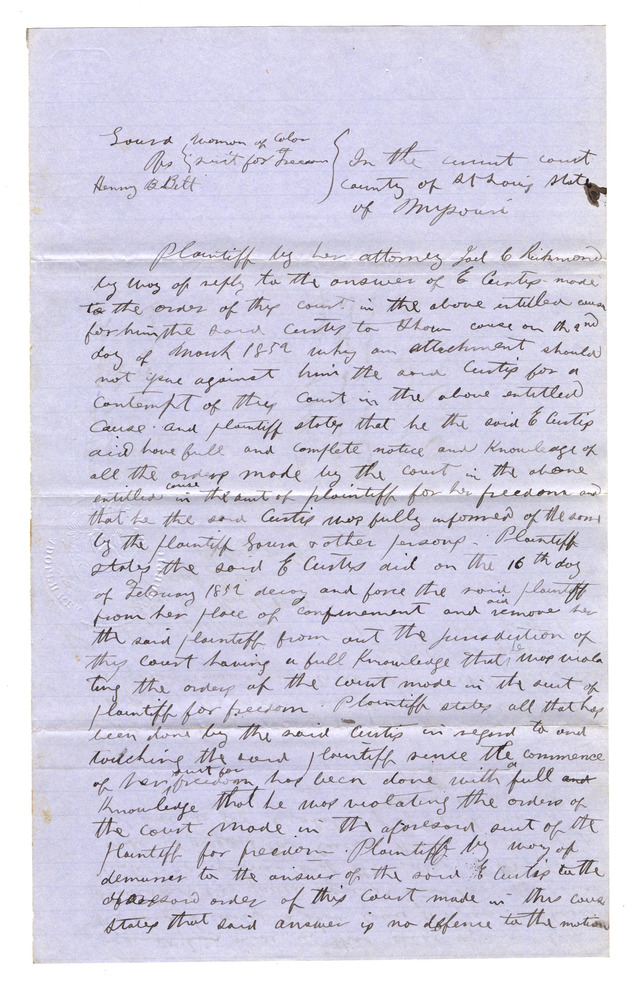 Laura woman of Color
vs } suit for Freedom
Henny B Belt
In the circuit court
county of St Louis State
of Missouri
Plaintiff by her attorney Joel C Richmond
by way of reply to the answer of E Curtis made
to the order of this court in the above entitled cause
for him the said Curtis to show cause on the 2nd
day of March 1852 why an attachment should
not issue against him the said Curtis for a
contempt of this Court in the above entitled
Cause. and plaintiff states that he the said E Curtis
did have full and complete notice and Knowledge of
all the orders made by the court in the above
entitled cause in the suit of plaintiff for her freedom and
that he the said Curtis was fully informed of the same
by the plaintiff Laura & other persons. Plaintiff
states the said E Curtis did on the 16th day
of February 1852 decoy and force the said plaintiff
from her place of confinement and did remove her
the said plaintiff from out the jurisdiction of
this court having a full Knowledge that he was viola
ting the orders of the court made in the suit of
plaintiff for freedom. Plaintiff states all that has
been done by the said Curtis in regard to and
touching the said plaintiff since the commence
of her suit for freedom has been done with a full and
Knowledge that he was violating the orders of
the court made in the aforesaid suit of the
plaintiff for freedom. Plaintiff by way of
demurrer to the answer of the said E Curtis to the
aforesaid order of this Court made in this cause
states that said answer is no deffence to the motion